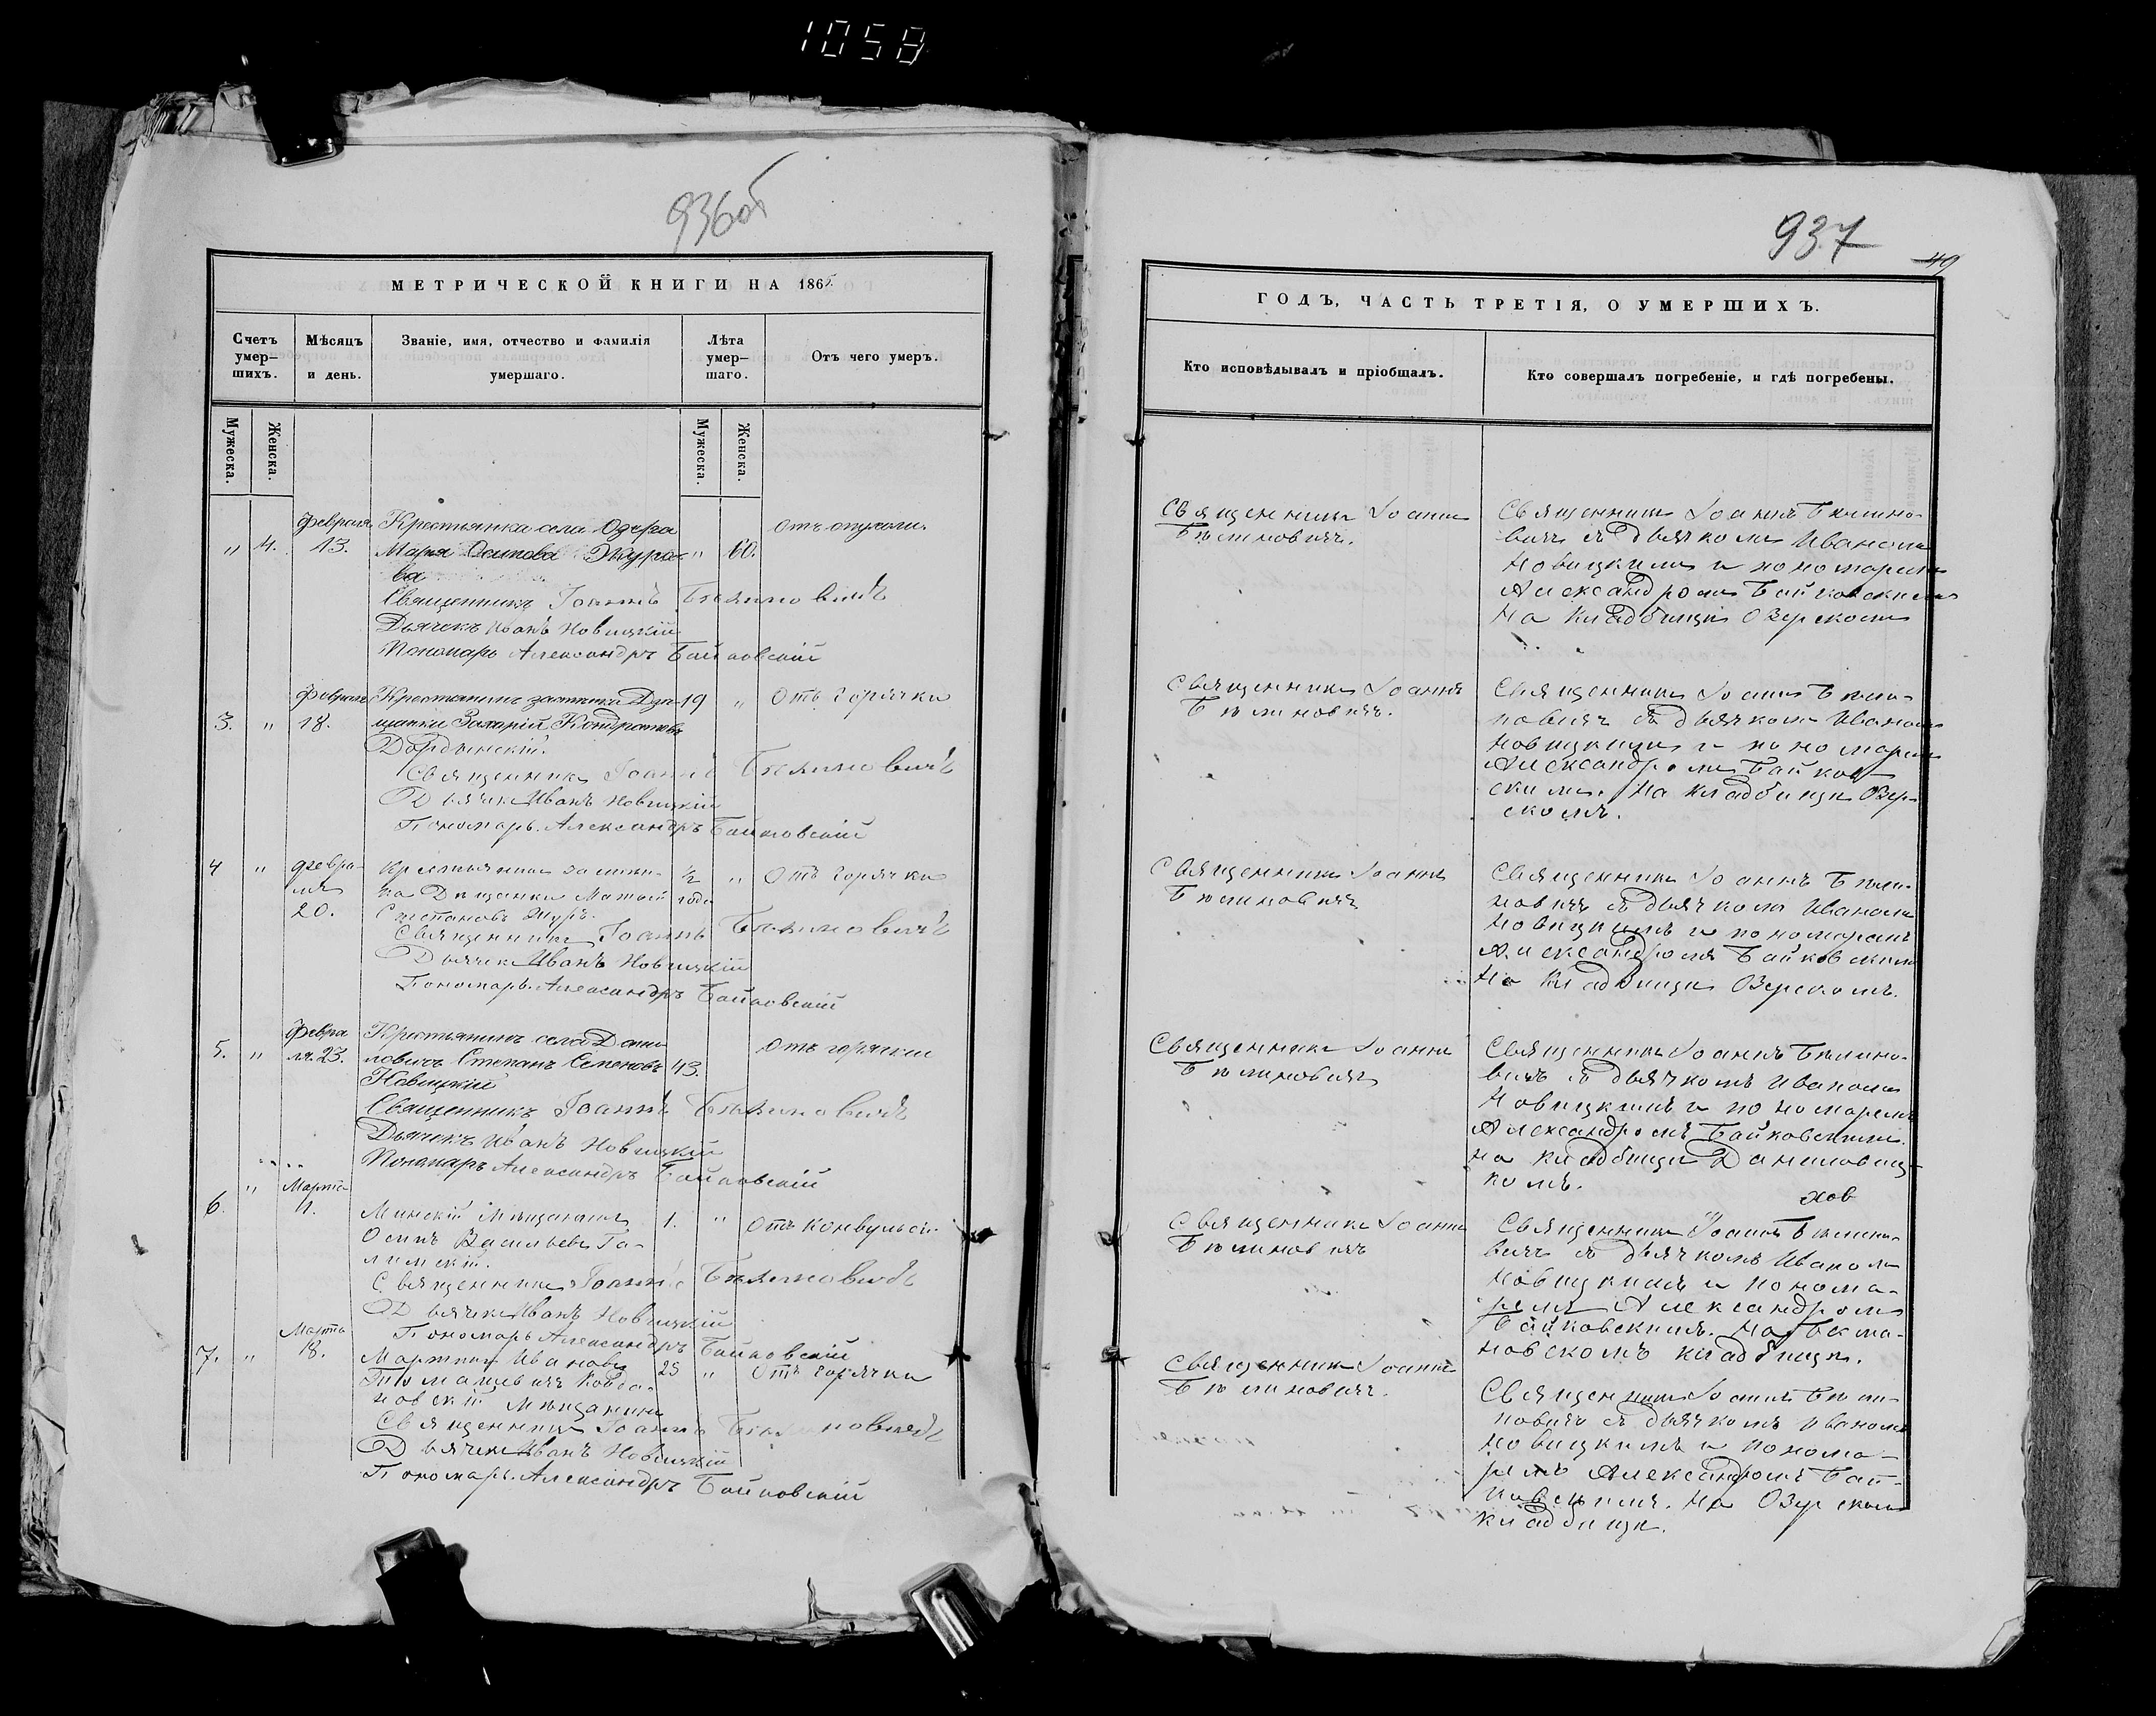 1058
936об
МЕТРИЧЕСКОЙ КНИГИ НА 1865
Счетъ умер-шихъ.
Мѣсяцъ и день.
Званіе, имя, отчество и фамилія умершаго.
Лѣта умер-шаго.
Отъ чего умеръ.
Мужеска.
Женска.
Мужеска.
Женска.
февраля Крестьянка села Озера отъ опухоли.
" 4. 13. Марія Осипова Журо- " 60.
ва
Священникъ Іоаннъ Бѣлиновичъ
Дьячекъ Иванъ Новицкій
Пономарь Александръ Байковскій
Февраля Крестьянинъ 19 " Отъ горячки
3. " 18. Захарій Кондратовъ
Священникъ Іоаннъ Бѣлиновичъ
Дьячекъ Иванъ Новицкій
Пономарь Александръ Байковскій
4 " февра- Крестьянинъ ½ " Отъ горячки
ля года
20. Степановъ Журъ.
Священникъ Іоаннъ Бѣлиновичъ
Дьячекъ Иванъ Новицкій
Пономарь Александръ Байковскій
Февра Крестьянинъ села Дани-
5. " ля 23. ловичъ Степанъ Семеновъ 43. Отъ горячки
Новицкій
Священникъ Іоаннъ Бѣлиновичъ
Дьячекъ Иванъ Новицкій
Пономарь Александръ Байковскій
" Марта
6. Минскій Мѣщанинъ 1. " Отъ конвульсій
Осипъ Васильевъ
Священникъ Іоаннъ Бѣлиновичъ
Дьячекъ Иванъ Новицкій
Пономарь Александръ Байковскій
Марта
7. " 18. Мартинъ Ивановъ 25 " Отъ горячки
мѣщанинъ
Священникъ Іоаннъ Бѣлиновичъ
Дьячекъ Иванъ Новицкій
Пономарь Александръ Байковскій
937
49
ГОДЪ, ЧАСТЬ ТРЕТІЯ, О УМЕРШИХЪ.
Кто исповѣдывалъ и пріобщалъ.
Кто совершалъ погребеніе, и гдѣ погребены.
Священникъ Іоаннъ
Бѣлиновичъ.
Священникъ Іоаннъ Бѣлино-
вичъ съ дьячкомъ Иваномъ
Новицкимъ и пономаремъ
Александромъ Байковскимъ
На кладбищѣ Озерскомъ
Священникъ Іоаннъ
Бѣлиновичъ.
Священникъ Іоаннъ Бѣли-
новичъ съ дьячкомъ Иваномъ
Новицкимъ и пономаремъ
Александромъ Байков-
скимъ. На кладбищѣ Озер-
скомъ.
Священникъ Іоаннъ
Бѣлиновичъ
Священникъ Іоаннъ Бѣли-
новичъ съ дьячкомъ Иваномъ
Новицкимъ и пономаремъ
Александромъ Байковскимъ
На кладбищѣ Озерскомъ.
Священникъ Іоаннъ
Бѣлиновичъ
Священникъ Іоаннъ Бѣлино-
вичъ съ дьячкомъ Иваномъ
Новицкимъ и пономаремъ
Александромъ Байковскимъ.
На кладбищѣ Даниловиц-
комъ.
Священникъ Іоаннъ
Бѣлиновичъ
Священникъ Іоаннъ Бѣлино-
вичъ съ дьячкомъ Иваномъ
Новицкимъ и понома-
ремъ Александромъ
Байковскимъ. На
новскомъ кладбищѣ.
Священникъ Іоаннъ
Бѣлиновичъ.
Священникъ Іоаннъ Бѣли-
новичъ съ дьячкомъ Иваномъ
Новицкимъ и понома-
ремъ Александромъ Бай-
ковскимъ. На Озерскомъ
кладбищѣ.